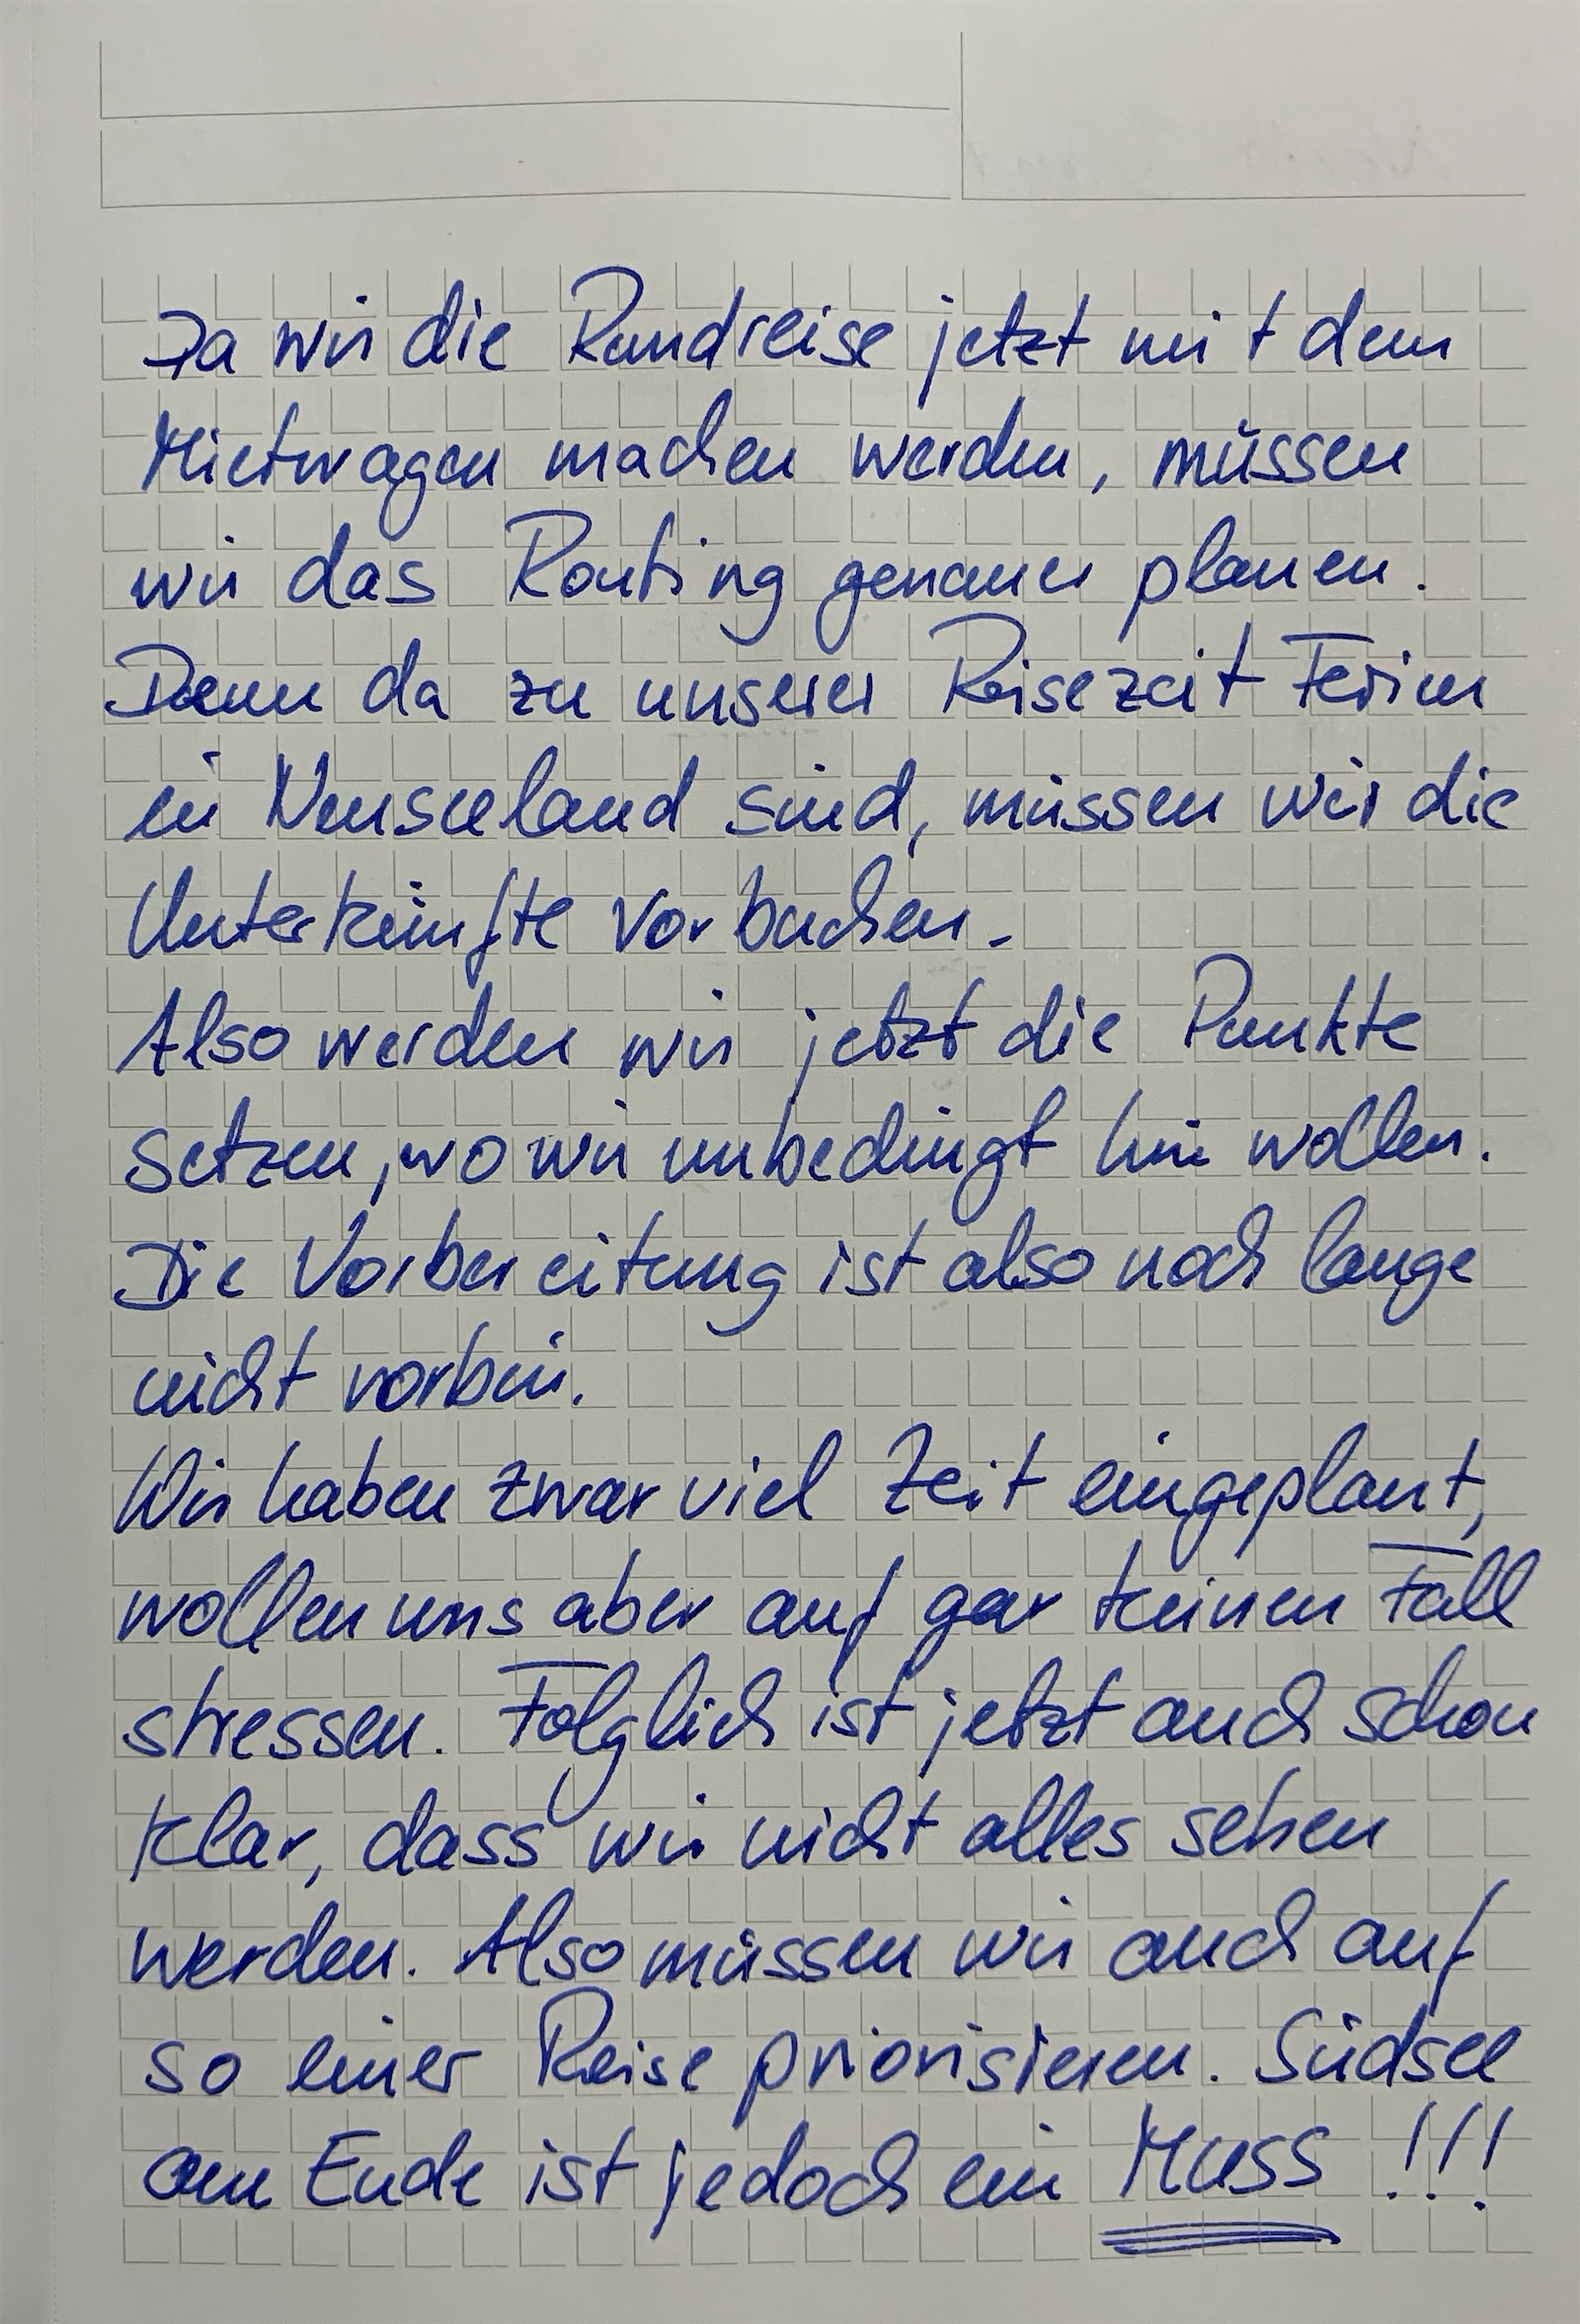 Da wir die Rundreise jetzt mit dem
Mietwagen machen werden, müssen
wir das Routing genauer planen.
Denn da zu unserer Reisezeit Ferien
in Neuseeland sind, müssen wir die
Unterkünfte vorbuchen.
Also werden wir jetzt die Punkte
setzen, wo wir unbedingt hin wollen.
Die Vorbereitung ist also noch lange
nicht vorbei.
Wir haben zwar viel Zeit eingeplant,
wollen uns aber auf gar keinen Fall
stressen. Folglich ist jetzt auch schon
klar, dass wir nicht alles sehen
werden. Also müssen wir auch auf
so einer Reise priorisieren. Südsee
am Ende ist jedoch ein Muss !!!